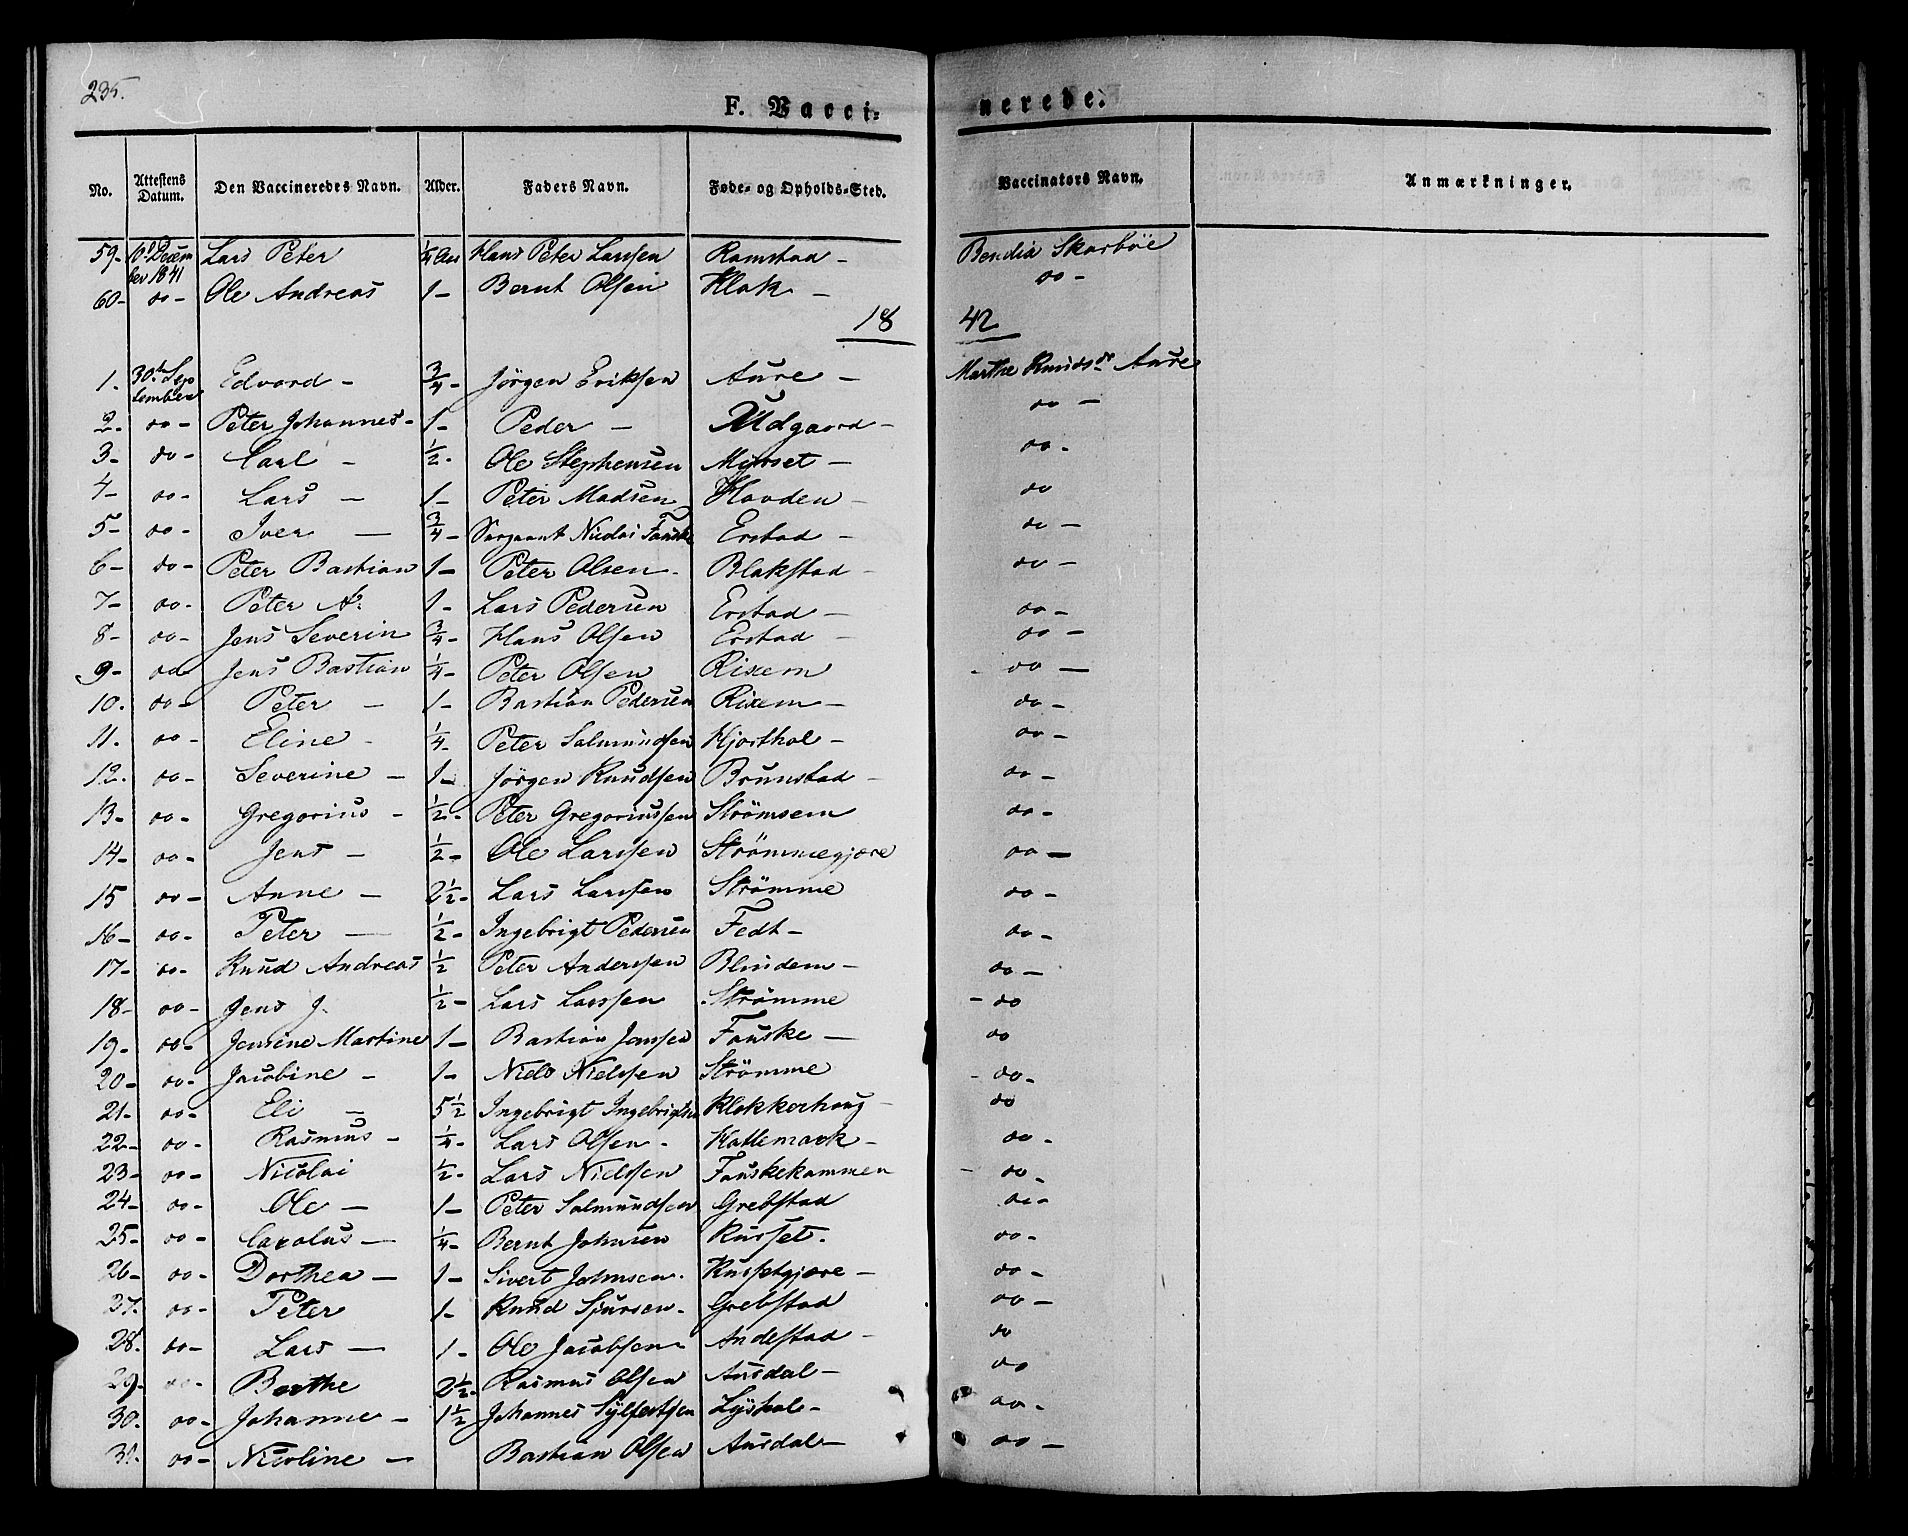 235.
F. Vacci- nerede.
No. Attestens Datum. Den Vaccineredes Navn. Alder. Faders Navn. Føde- og Opholds-Sted. Vaccinators Navn. Anmærkninger.
59- 10de Decem- Lars Peter 1/4 Aar Hans Peter Larssen Ramstad - Bendix Skarbøe
ber 1841
60- do - Ole Andreas 1- Bernt Olsen Klok - do -
18 42
1. 30te Sep Edvard - 3/4- Jörgen Eriksen Aure - Marthe Knudsdr Aure
tember
2. do - Peter Johannes- 1- Peder - Udgaard - do -
3- do - Carl - 1/2- Ole Stephensen Myrset - do -
4- do - Lars - 1- Peter Madsen Hovden - do
5- do - Iver - 3/4- Sergeant Nicolai Fauske Erstad - do -
6- do - Peter Bastian 1- Peter Olsen - Blakstad - do -
7- do - Peter A. 1- Lars Pedersen Erstad - do -
8- do - Jens Severin 3/4- Hans Olsen Erstad - do -
9- do Jens Bastian 1/4- Peter Olsen Rixem - do -
10. do - Peter - 1- Bastian Pedersen Rixem - do -
11. do - Eline - 1/4- Peter Salmundsen Hjorthol - do -
12. do - Severine - 1- Jörgen Knudsen Brunstad - do -
13- do - Gregorius - 1/2- Peter Gregoriussen Strömsem do -
14- do - Jens - 1/2- Ole Larssen Strömmegjære do -
15 do - Anne - 2 1/2- Lars Larssen Strömme do -
16- do - Peter - 1/2- Ingebrigt Pedersen Fedt - do -
17- do - Knud Andreas 1/2 Peter Anderssen Blindem - do -
18- do - Jens J. 1/2- Lars Larssen Strömme - do
19- do - Jensine Martine 1- Bastian Janssen Fauske - do
20- do - Jacobine - 1- Niels Nielssen Strömme - do -
21- do - Eli - 5 1/2 Ingebrigt Ingebrigtsen Klokkerhaug - do
22- do - Rasmus - 1/4- Lars Olsen - Kattemark - do -
23- do - Nicolai 1/2- Lars Nielssen Fauskekammen - do -
24- do - Ole - 1- Peter Salmundsen Grebstad do -
25- do - Carolus - 1/4- Bernt Johnsen Russet. do -
26- do - Dorthea - 1- Sivert Johnsen. Russetgjære - do -
37. do - Peter 1- Knud Sjursen - Grebstad do -
28- do - Lars - 1- Ole Jacobsen - Andestad - do
29- do - Berthe 2 1/2- Rasmus Olsen Aursdal - do
30. do - Johanne - 1 1/2 Johannes Sylfestsen Lyshol - do -
31. do - Nicoline - Bastian Olsen Aursdal - do -